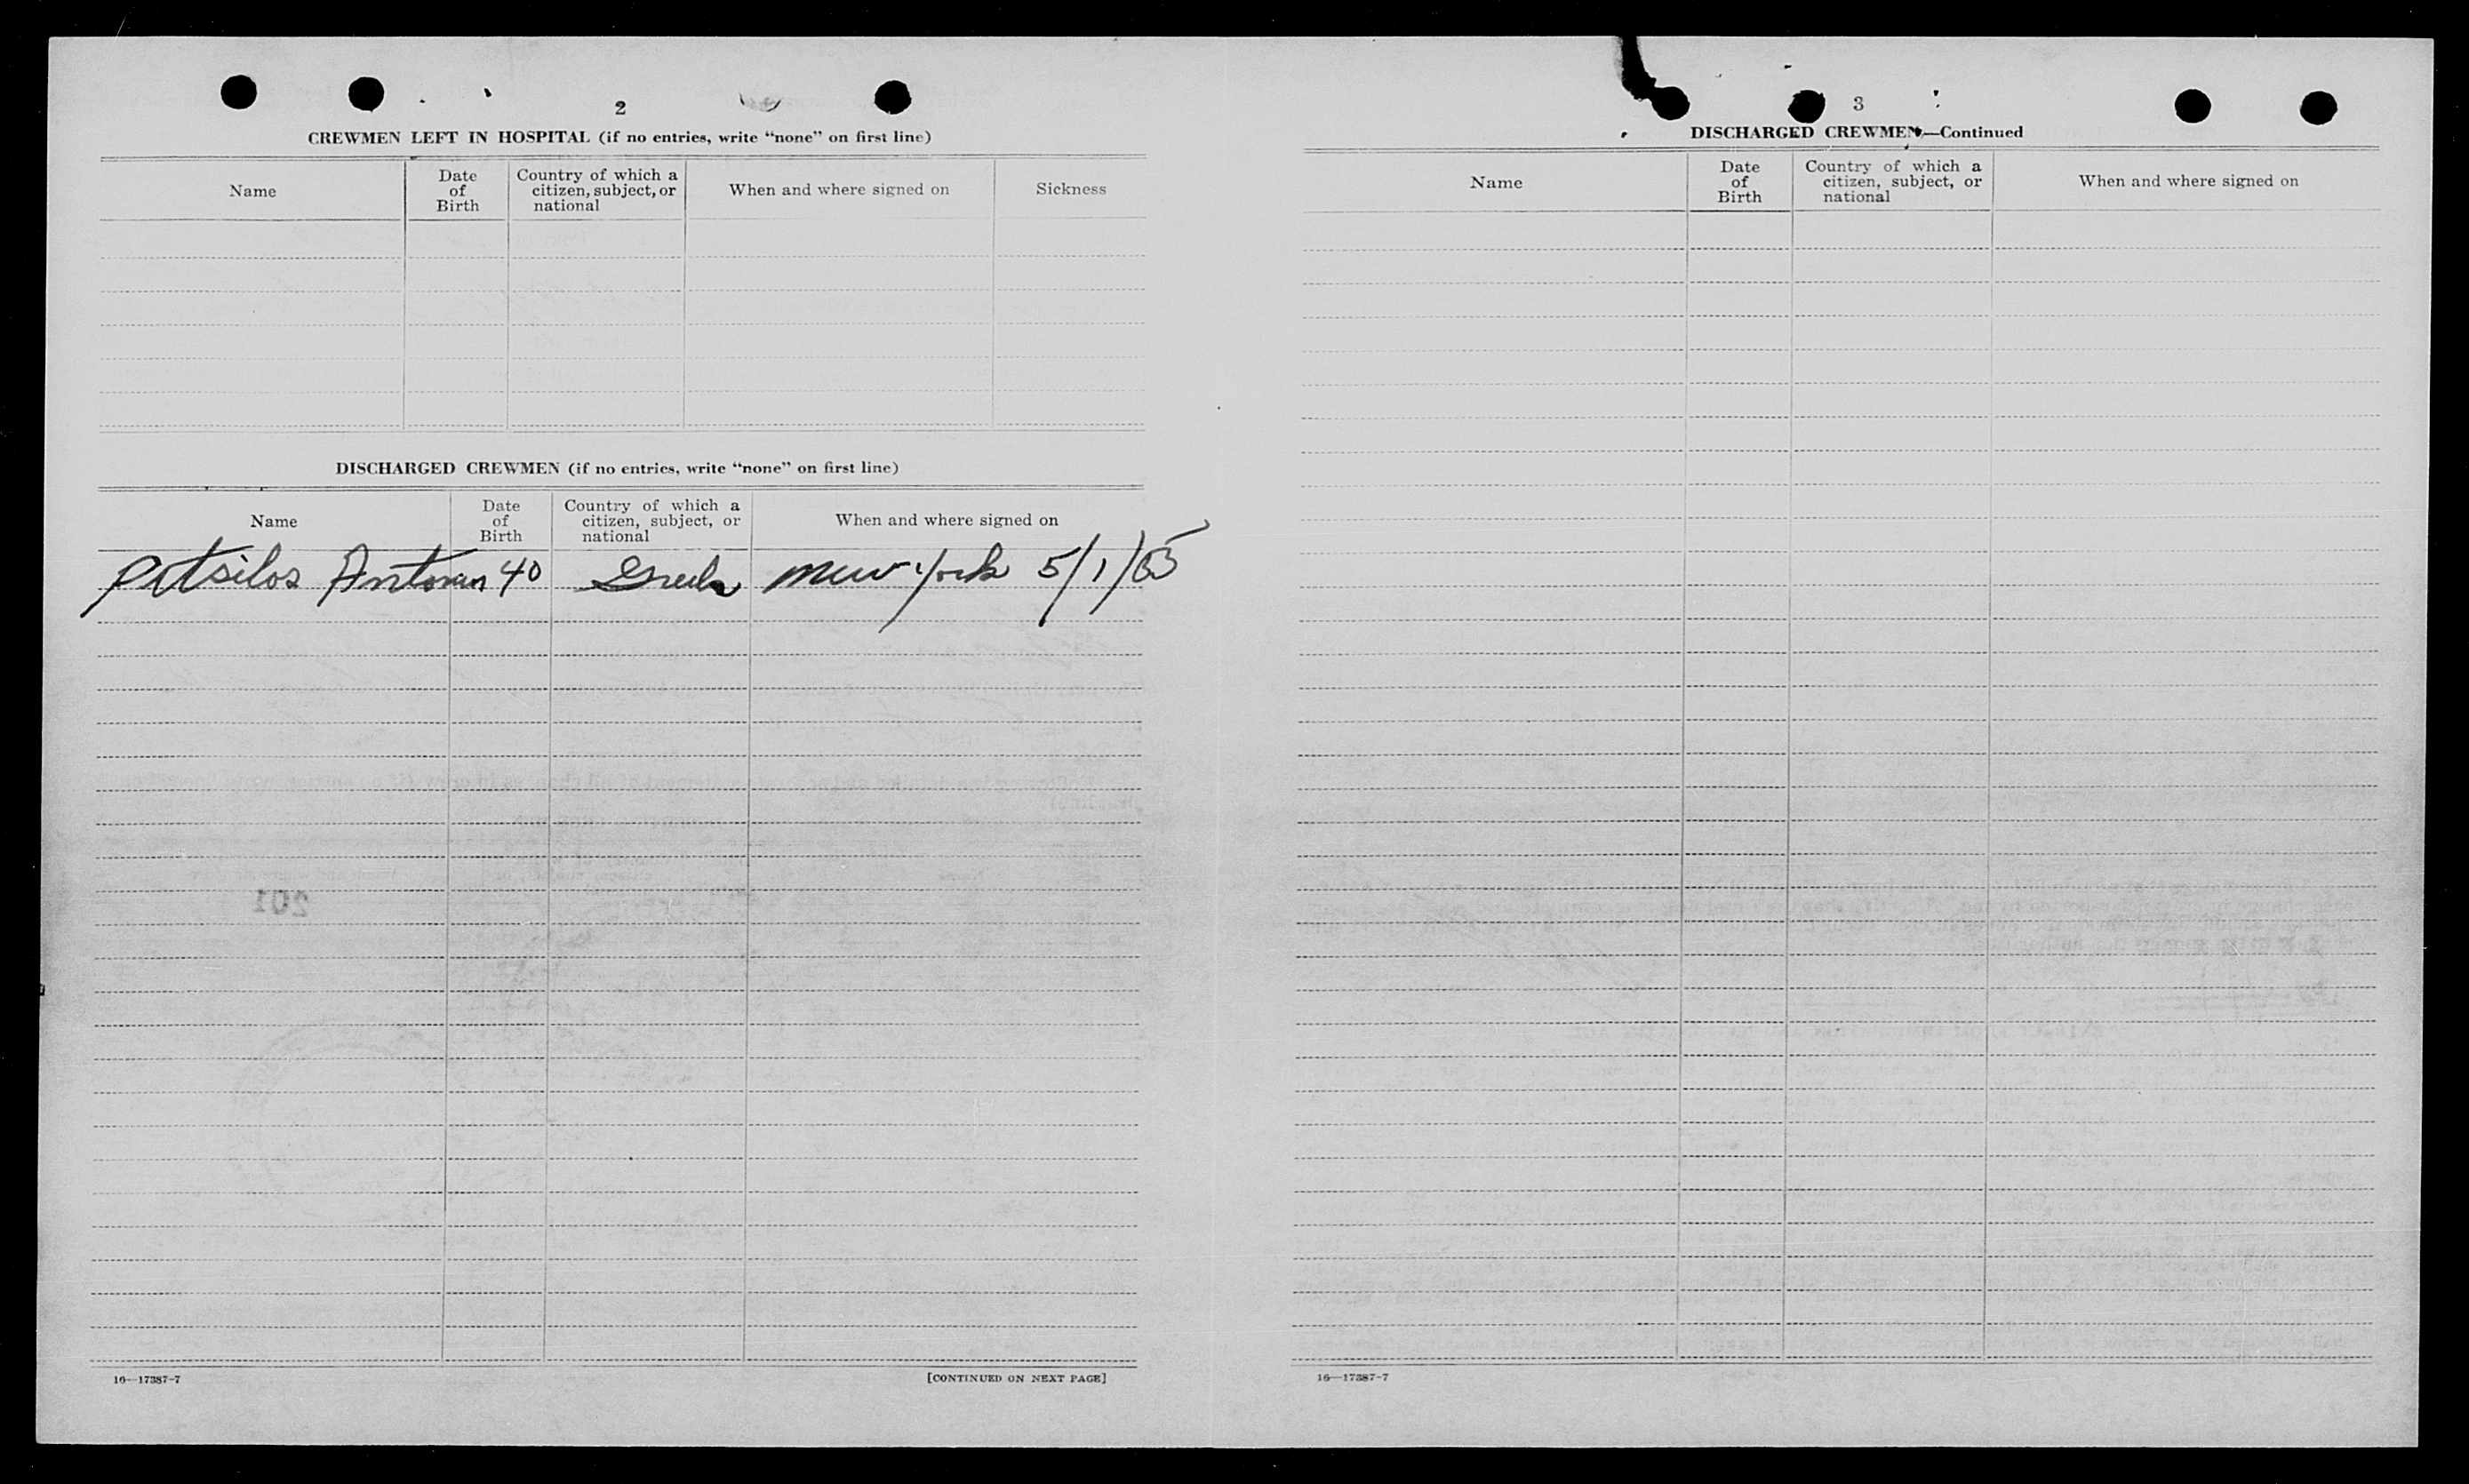 2
CREWMEN LEFT IN HOSPITAL (if no entries, write “none” on first line)
Name
Date of Birth
Country of which a citizen, subject, or national
When and where signed on
Sickness
DISCHARGED CREWMEN (if no entries, write “none” on first line)
Name
Date of Birth
Country of which a citizen, subject, or national
When and where signed on
Pitsilos 40 Greek New York 5/1/55
201
16—17387-7
[CONTINUED ON NEXT PAGE]
3
DISCHARGED CREWMEN—Continued
Name
Date of Birth
Country of which a citizen, subject, or national
When and where signed on
16—17387-7